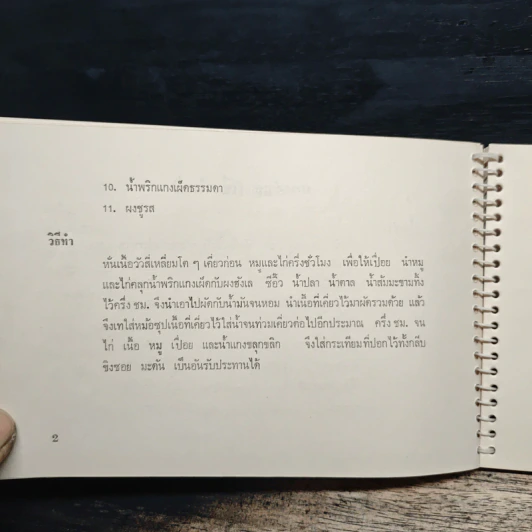 10. น้ำพริกแกงเผ็ดธรรมดา
11. ผงชูรส
วิธีทำ
หั่นเนื้อวัวสี่เหลี่ยมโต ๆ เคี่ยวก่อน หมูและไก่ครึ่งชั่วโมง เพื่อให้เปื่อย นำหมู
และไก่คลุกน้ำพริกแกงเผ็ดกับผงฮังเล ซีอิ๊ว น้ำปลา น้ำตาล น้ำส้มมะขามทิ้ง
ไว้ครึ่ง ชม. จึงนำเอาไปผัดกับน้ำมันจนหอม นำเนื้อที่เคี่ยวไว้มาผัดรวมด้วย แล้ว
จึงเทใส่หม้อซุปเนื้อที่เคี่ยวไว้ใส่น้ำจนท่วมเคี่ยวต่อไปอีกประมาณ ครึ่ง ชม. จน
ไก่ เนื้อ หมู เปื่อย และน้ำแกงขลุกขลิก จึงใส่กระเทียมที่ปอกไว้ทั้งกลีบ
ขิงซอย มะตัน เป็นอันรับประทานได้
2